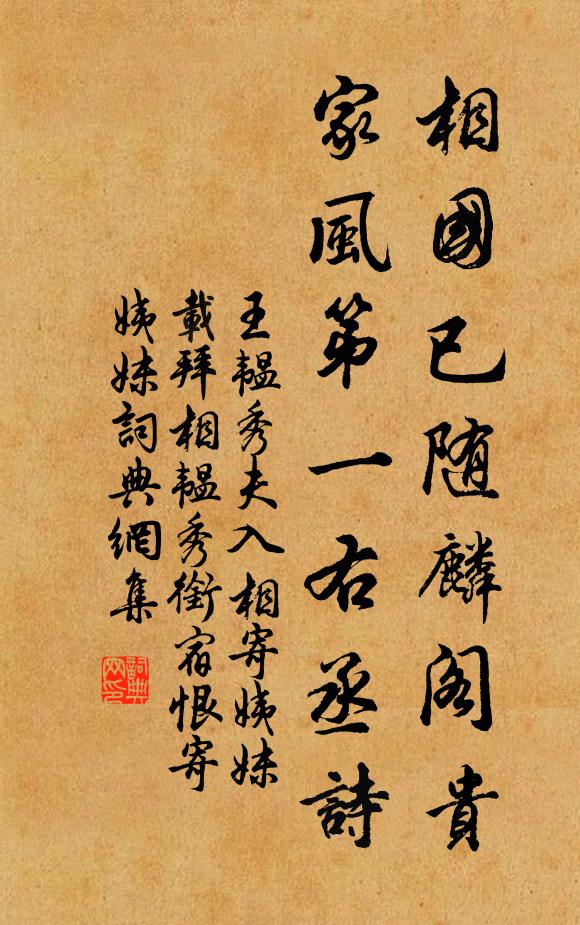 相國已随麟阁貴
家風第一右丞詩
王韞秀夫入相寄姨妹
載拜相韞秀銜宿恨寄
姨妹詞典網集
詞典網印